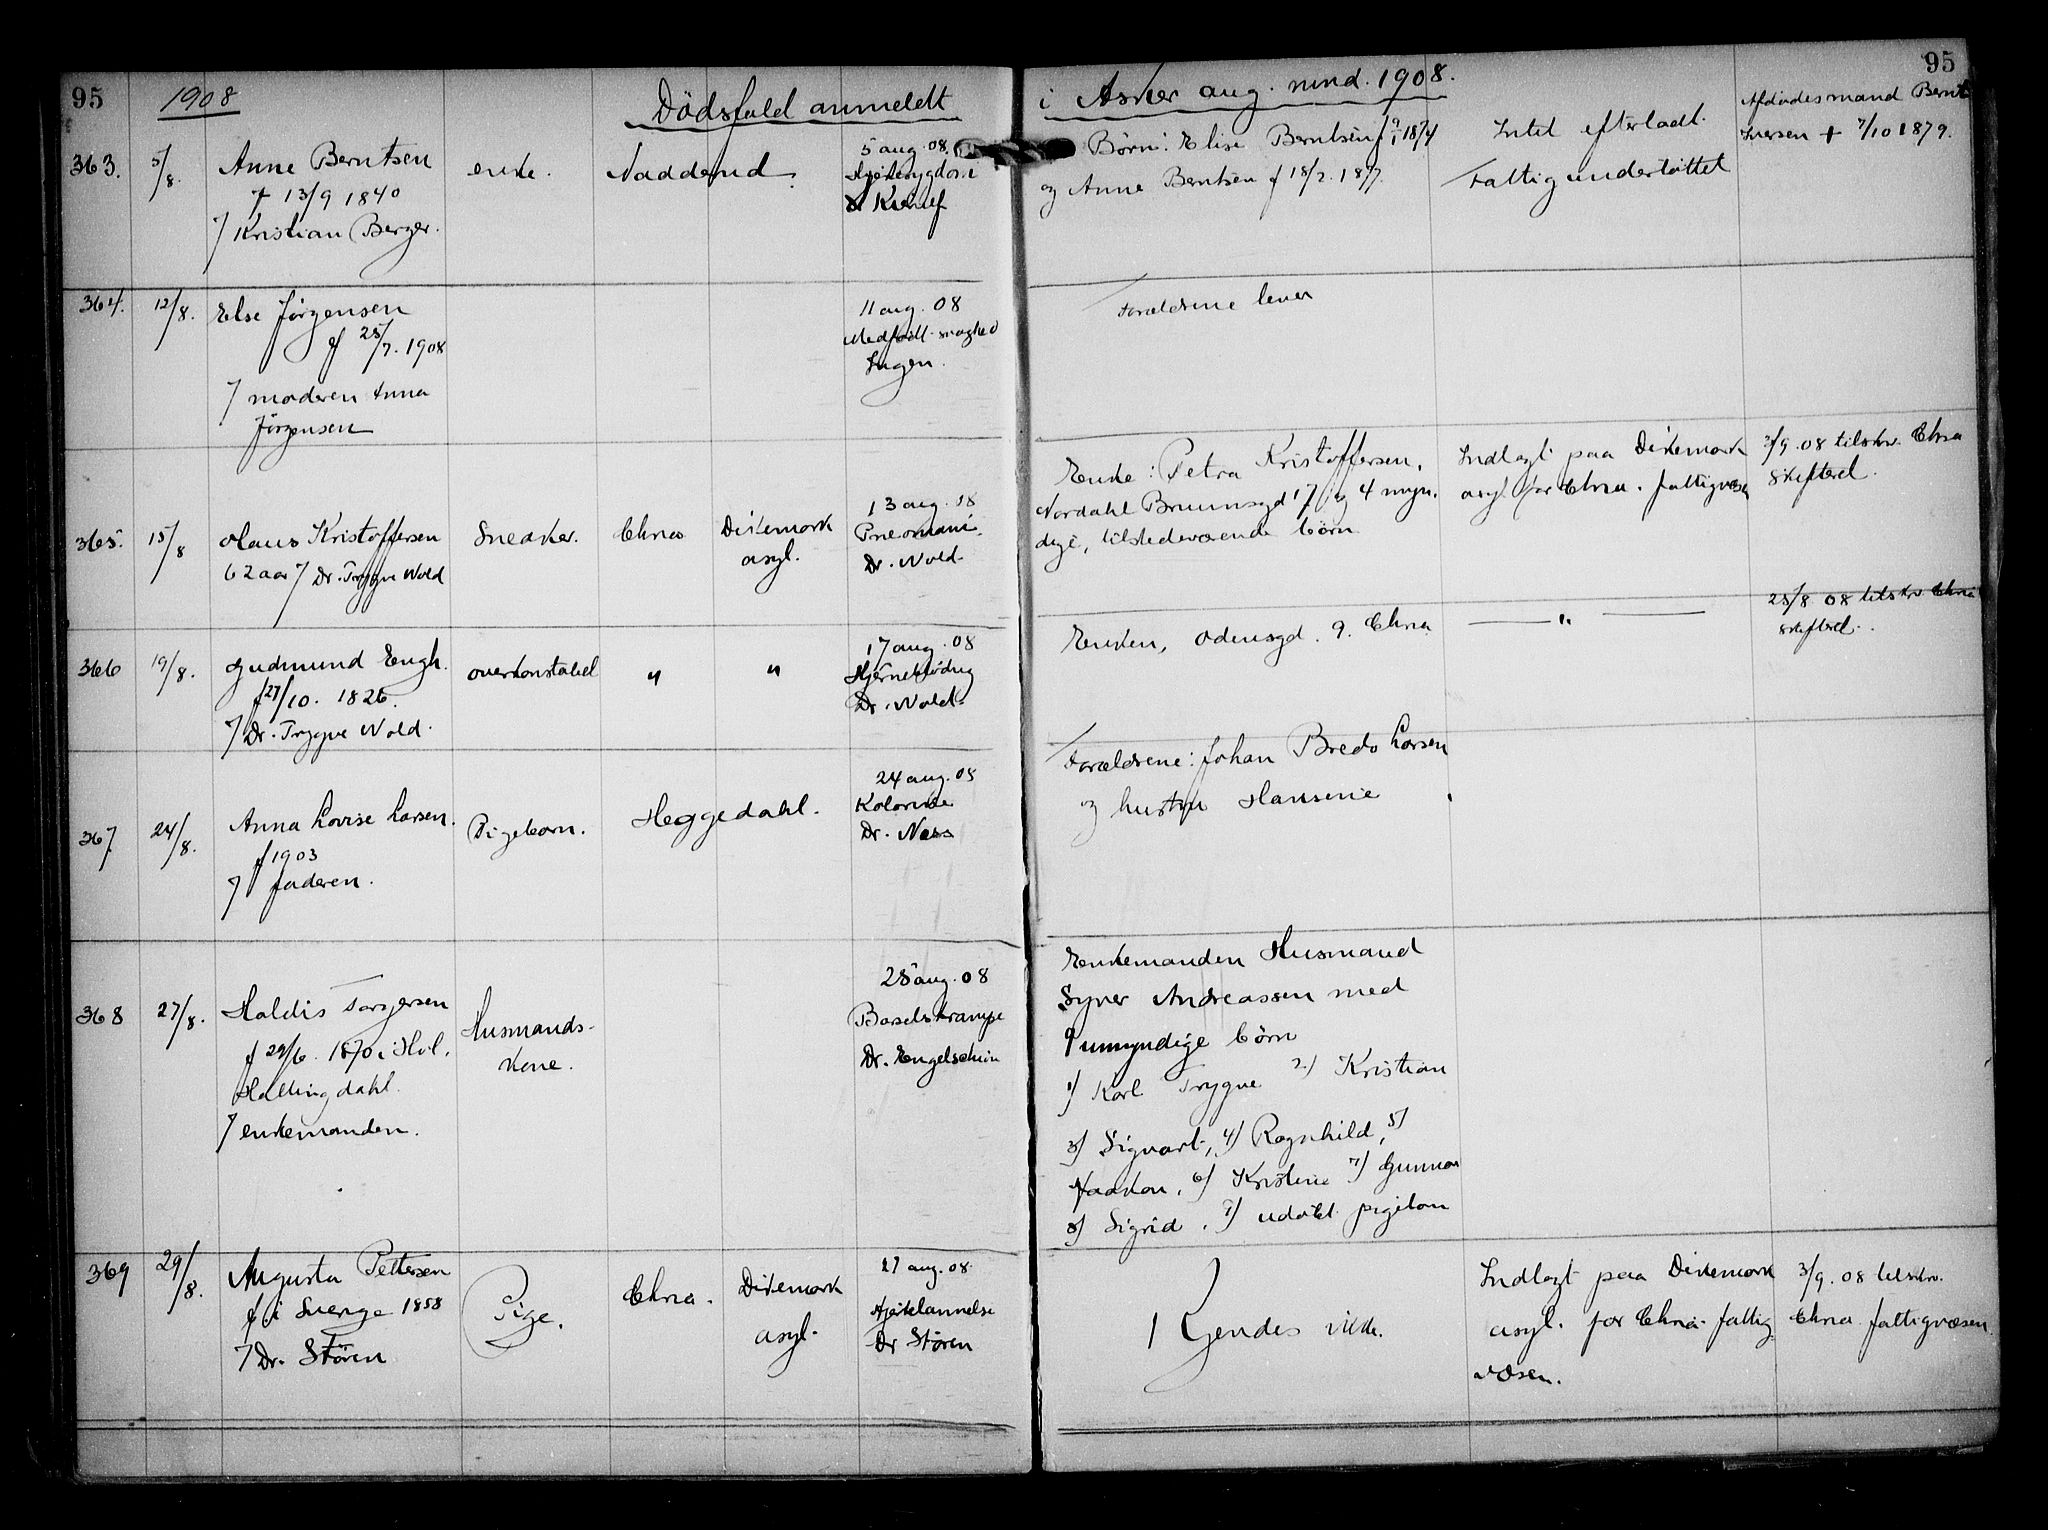 95
1908
Dödsfald anmeldt
i Asker aug. mnd. 1908.
95
363.
5/8.
Anne Berntsen
f 13/9 1840
7 Kristian Berger.
enke.
Nadderud.
5 aug. 08.
Hjertesygdom
Børn: Elise Berntsen f 9/1 1874
og Anne Berntsen f 18/2. 1877.
Intet efterladt.
Fattigunderstøttet
Afdødes mand Bernt
Iversen + 7/10 1879.
364.
12/8.
Else Jørgensen
f 25/7. 1908
7 moderen Anna
Jörgensen
11 aug. 08
Medfødt svaghed
Ingen.
Forældrene lever
365.
15/8
Olaus Kristoffersen
62 aar 7 Dr. Trygve Wold
Snedker.
Chra
Dikemark
asyl.
13 aug. 08
Pneomani.
Dr. Wold.
Enke: Petra Kristoffersen,
Nordahl Brunnsgd 17, og 4 myn.
dige, tilstedeværende børn
Indlagt paa Dikemark
asyl for Chra. fattigvæsen
3/9. 08 tilskr. Chra
Skifteret.
366
19/8.
Gudmund Engh.
f 27/10. 1826.
7 Dr. Trygve Wold.
overkonstabel
"
"
17 aug. 08
Hjerneblødng
Dr. Wold.
Enken, Odensgd. 9. Chra
— " —
25/8 08 tilskr. Chra
skifteret.
367
24/8.
Anna Lovise Larsen.
f 1903
7 faderen.
Pigebarn.
Heggedahl.
24 aug. 08
Kolerine
Dr. Næss
Forældrene: Johan Bredo Larsen
og hustru Hansine
368
27/8.
Haldis Torgersen
f 29/6. 1870 i Hol,
Hallingdahl.
7 enkemanden.
Husmands-
kone.
25 aug. 08
Barselskrampe
Dr. Engelschiøn
Enkemanden Husmand
Syver Andreassen med
9 umyndige børn
1) Karl Trygve 2) Kristian
3) Sigvart, 4) Ragnhild, 5)
Haakon, 6) Kristine 7) Gunnar
8) Sigrid, 9) udøbt pigebarn
369
29/8.
Augusta Pettersen
f i Sverge 1858
7 Dr. Stören
Pige.
Chra.
Dikemark
asyl.
27 aug. 08
Hjertelammelse
Dr Stören
Kjendes ikke.
Indlagt paa Dikemark
asyl. for Chra. fattig
væsen.
3/9. 08 tilskr.
Chra fattigvæsen.